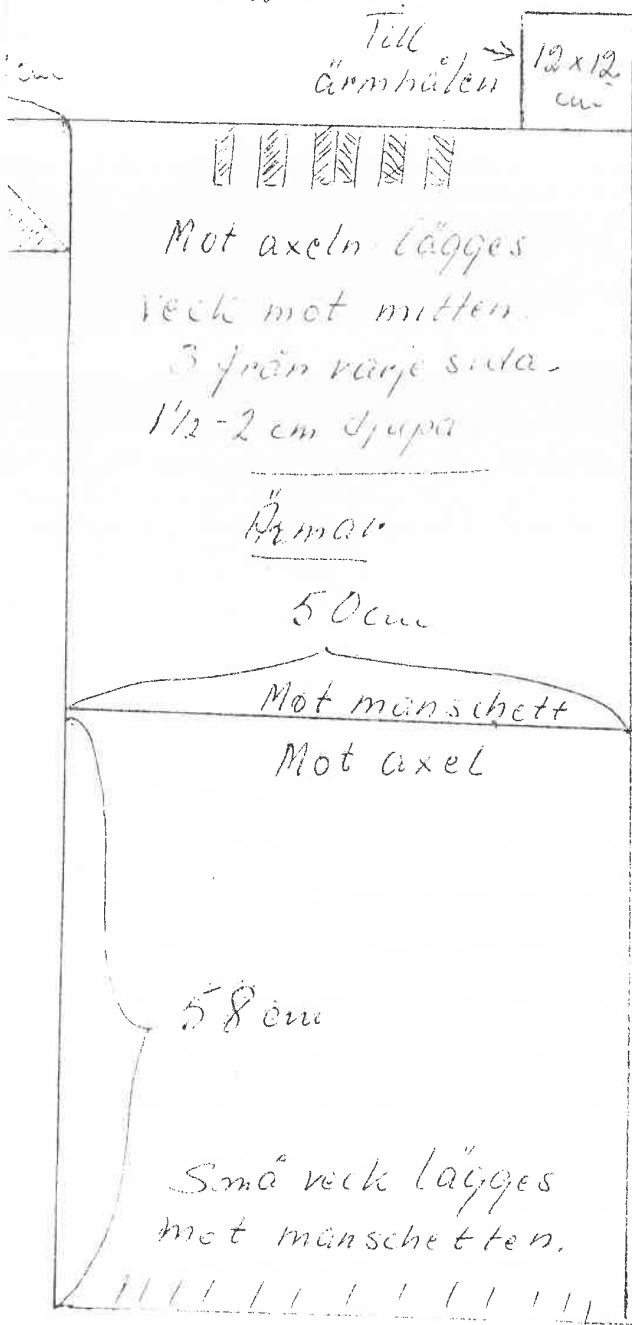 Till
ärmhålen
12x12
cm
cm
Mot axeln lägges
veck mot mitten.
3 från varje sida.
1½-2 cm djupa
Ärmar
50cm
Mot manschett
Mot axel
58cm
Små veck lägges
mot manschetten.